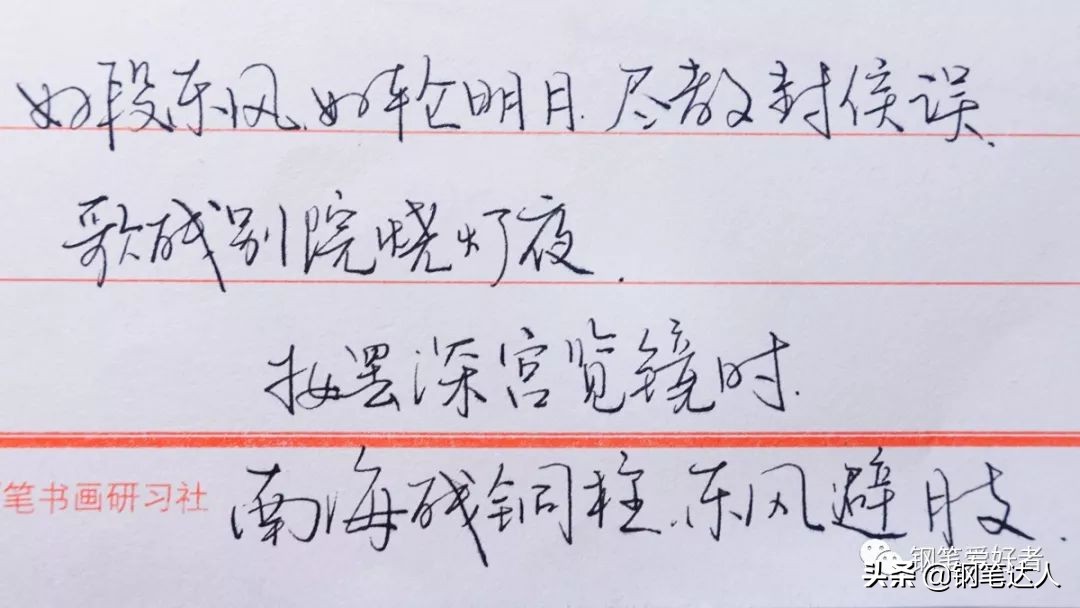 好段东风、好轮明月.尽教封侯误.
歌残别院烧灯夜.
妆罢深宫览镜时.
南海残铜柱.东风避月支.
笔书画研习社
钢笔爱好者
头条 @钢笔达人